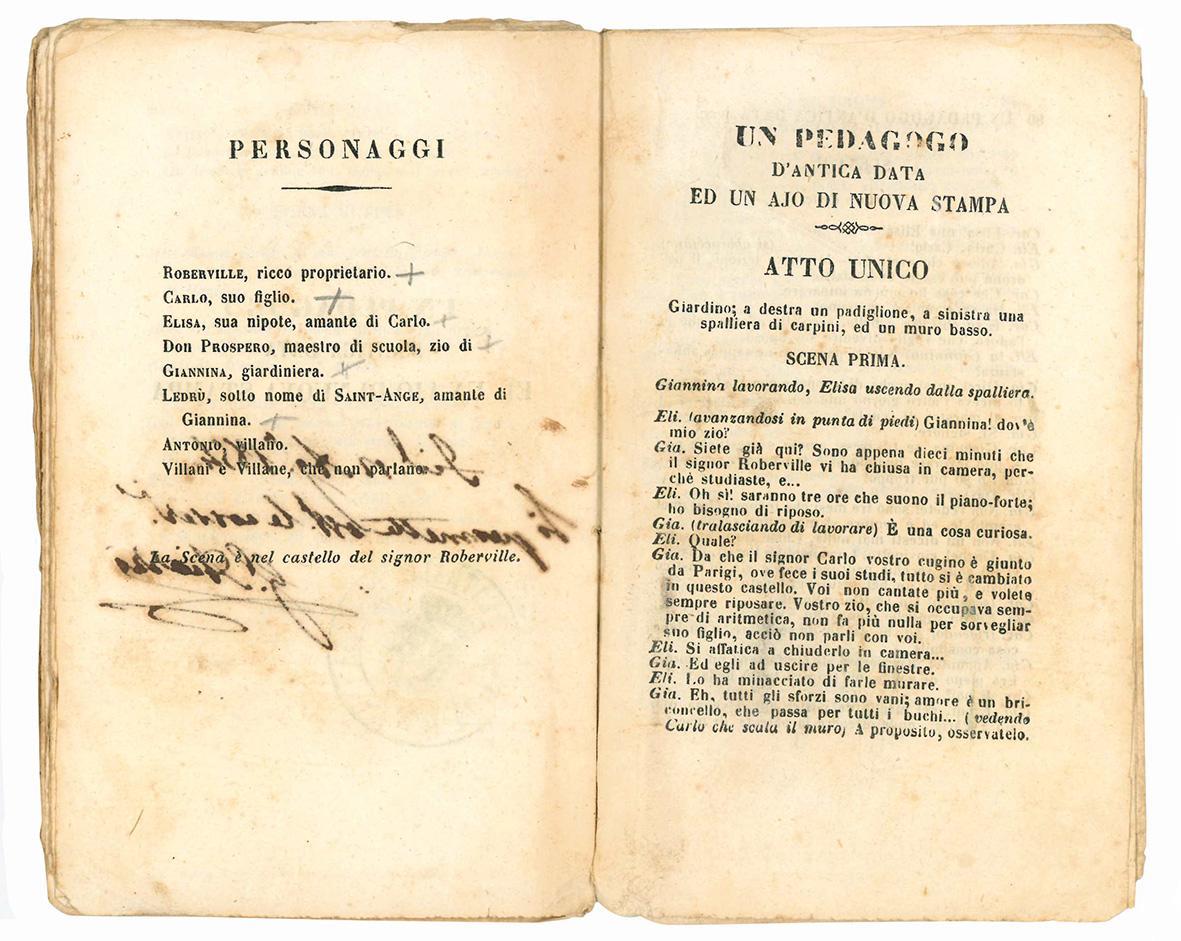 PERSONAGGI
ROBERVILLE, ricco proprietario.
CARLO, suo figlio.
ELISA, sua nipote, amante di Carlo.
DON PROSPERO, maestro di scuola, zio di
GIANNINA, giardiniera.
LEDRÙ, sotto nome di SAINT-ANGE, amante di
Giannina.
ANTONIO, villano.
Villani e Villane, che non parlano.
La Scena è nel castello del signor Roberville.
UN PEDAGOGO
D'ANTICA DATA
ED UN AJO DI NUOVA STAMPA
ATTO UNICO
Giardino; a destra un padiglione, a sinistra una
spalliera di carpini, ed un muro basso.
SCENA PRIMA.
Giannina lavorando, Elisa uscendo dalla spalliera.
Eli. (avanzandosi in punta di piedi) Giannina! dov'è
mio zio?
Gia. Siete già qui? Sono appena dieci minuti che
il signor Roberville vi ha chiusa in camera, per-
chè studiaste, e...
Eli. Oh sì! saranno tre ore che suono il piano-forte;
ho bisogno di riposo.
Gia. (tralasciando di lavorare) È una cosa curiosa.
Eli. Quale?
Gia. Da che il signor Carlo vostro cugino è giunto
da Parigi, ove fece i suoi studi, tutto si è cambiato
in questo castello. Voi non cantate più, e volete
sempre riposare. Vostro zio, che si occupava sem-
pre di aritmetica, non fa più nulla per sorvegliar
suo figlio, acciò non parli con voi.
Eli. Si affatica a chiuderlo in camera...
Gia. Ed egli ad uscire per le finestre.
Eli. Lo ha minacciato di farle murare.
Gia. Eh, tutti gli sforzi sono vani; amore è un bri-
concello, che passa per tutti i buchi... (vedendo
Carlo che scala il muro) A proposito, osservatelo.